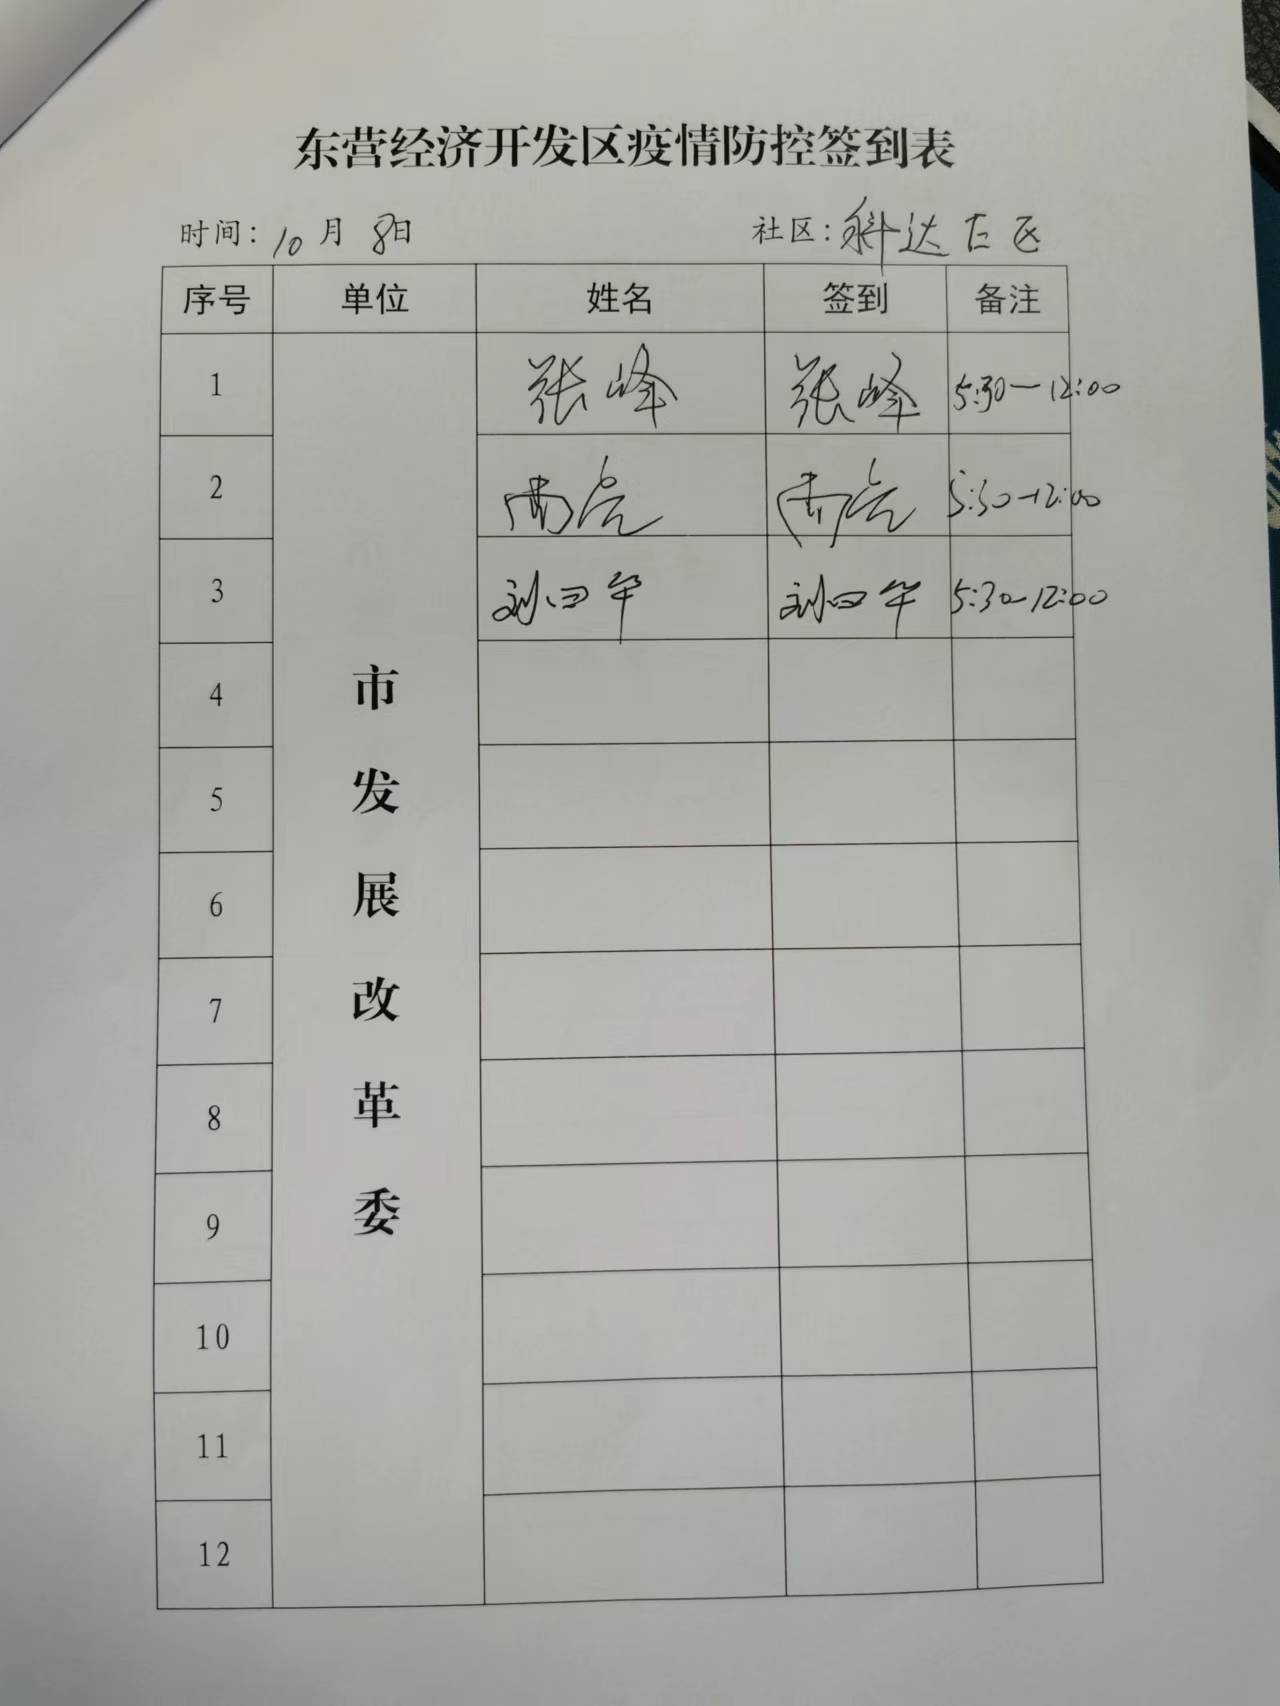 东营经济开发区疫情防控签到表
时间：10月8日 社区：科达 区
序号 单位 姓名 签到 备注
1 张峰 张峰 5:30-12:00
2 亮 亮 5:30-12:00
3 刘曰华 刘曰华 5:30-12:00
4
5
6
7
8
9
10
11
12
市发展改革委